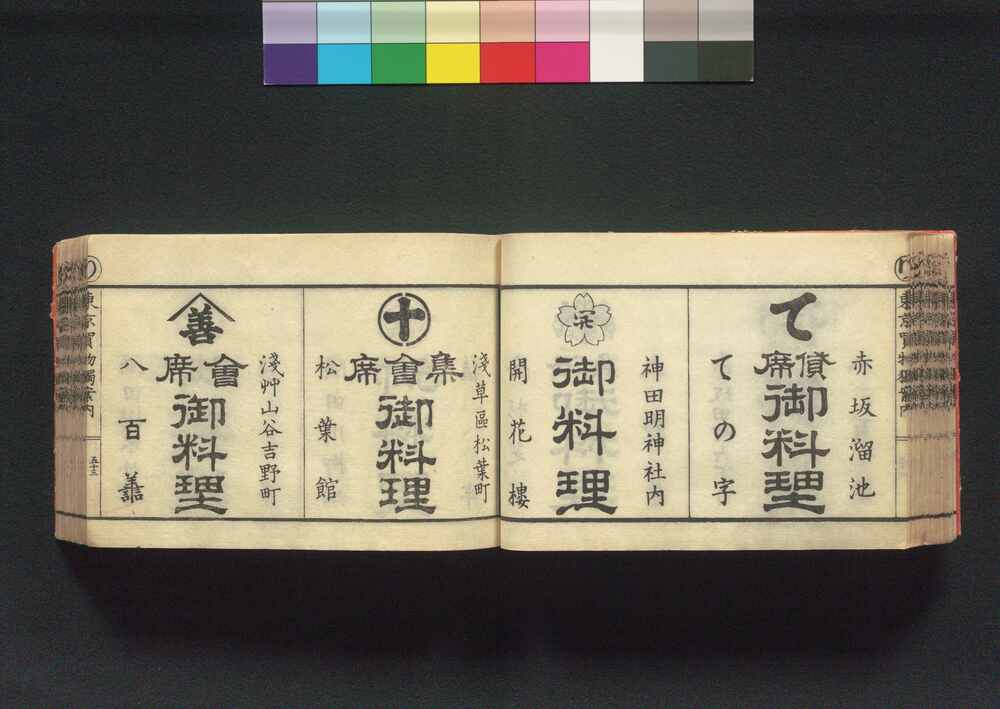 赤坂溜池
て
貸席
御料理
ての字
神田明神社内
御料理
開花樓
淺草區松葉町
十
集會席
御料理
松葉館
淺艸山谷吉野町
善
會席
御料理
八百善
東京買物獨案内
五十三